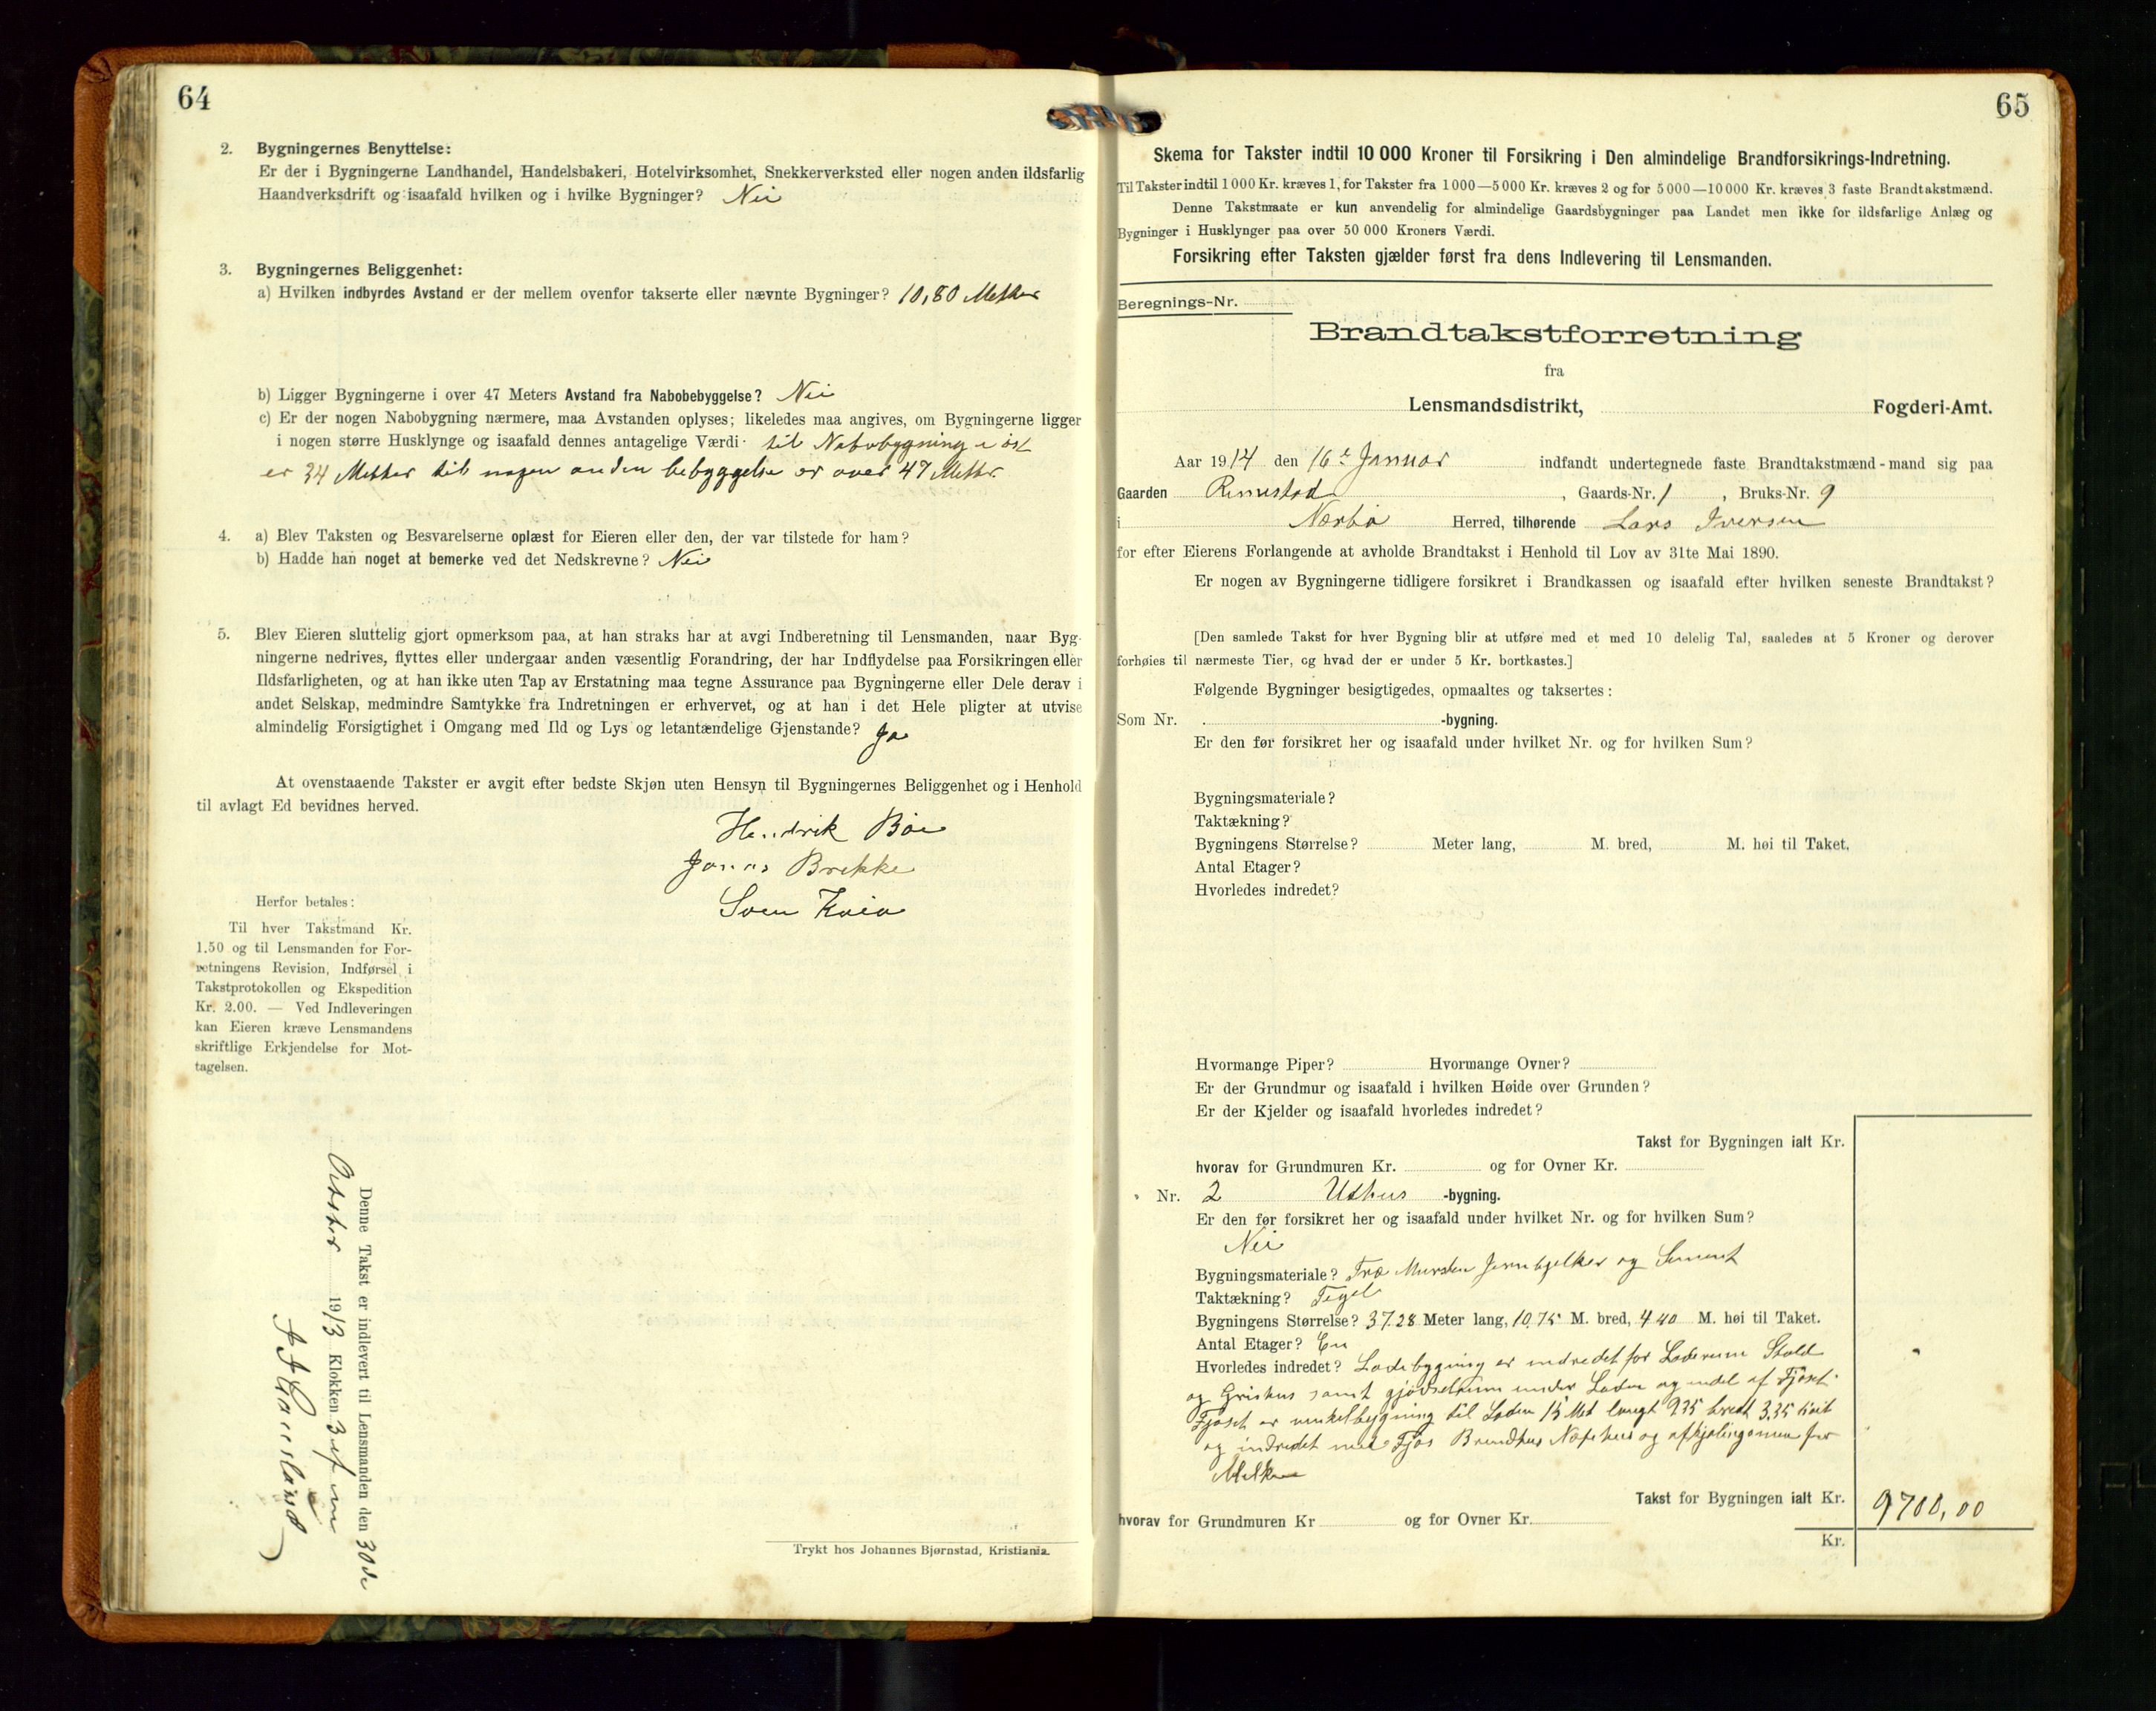 64
2. Bygningernes Benyttelse:
Er der i Bygningerne Landhandel, Handelsbakeri, Hotelvirksomhet, Snekkerverksted eller nogen anden ildsfarlig
Haandverksdrift og isaafald hvilken og i hvilke Bygninger? Nei
3. Bygningernes Beliggenhet:
a) Hvilken indbyrdes Avstand er der mellem ovenfor takserte eller nævnte Bygninger? 10,80 Metter
b) Ligger Bygningerne i over 47 Meters Avstand fra Nabobebyggelse? Nei
c) Er der nogen Nabobygning nærmere, maa Avstanden oplyses; likeledes maa angives, om Bygningerne ligger
i nogen større Husklynge og isaafald dennes antagelige Værdi· til Nabobygning i øst
er 34 Metter til nogen anden bebyggelse er over 47 Metter.
4. a) Blev Taksten og Besvarelserne oplæst for Eieren eller den, der var tilstede for ham?
b) Hadde han noget at bemerke ved det Nedskrevne? Nei
5. Blev Eieren sluttelig gjort opmerksom paa, at han straks har at avgi Indberetning til Lensmanden, naar Byg-
ningerne nedrives, flyttes eller undergaar anden væsentlig Forandring, der har Indflydelse paa Forsikringen eller
Ildsfarligheten, og at han ikke uten Tap av Erstatning maa tegne Assurance paa Bygningerne eller Dele derav i
andet Selskap, medmindre Samtykke fra Indretningen er erhvervet, og at han i det Hele pligter at utvise
almindelig Forsigtighet i Omgang med Ild og Lys og letantændelige Gjenstande? Ja
At ovenstaaende Takster er avgit efter bedste Skjøn uten Hensyn til Bygningernes Beliggenhet og i Henhold
til avlagt Ed bevidnes herved.
Hendrik Bøe
Jonas Brekke
Sven Kvia
Herfor betales:
Til hver Takstmand Kr.
1.50 og til Lensmanden for For-
retningens Revision, Indførsel i
Takstprotokollen og Ekspedition
Kr. 2.00. — Ved Indleveringen
kan Eieren kræve Lensmandens
skriftlige Erkjendelse for Mot-
tagelsen.
Denne Takst er indlevert til Lensmanden den 30de
1913 Klokken 3
Trykt hos Johannes Bjørnstad, Kristiania.
65
Skema for Takster indtil 10 000 Kroner til Forsikring i Den almindelige Brandforsikrings-Indretning.
Til Takster indtil 1000 Kr. kræves 1, for Takster fra 1000—5000 Kr. kræves 2 og for 5000—10000 Kr. kræves 3 faste Brandtakstmænd.
Denne Takstmaate er kun anvendelig for almindelige Gaardsbygninger paa Landet men ikke for ildsfarlige Anlæg og
Bygninger i Husklynger paa over 50 000 Kroners Værdi.
Forsikring efter Taksten gjælder først fra dens Indlevering til Lensmanden.
Beregnings-Nr.
Brandtakstforretning
fra
Lensmandsdistrikt, Fogderi-Amt.
Aar 1914 den 16de Januar indfandt undertegnede faste Brandtakstmænd-mand sig paa
Gaarden Rimestad, Gaards-Nr. 1, Bruks-Nr. 9
i Nærbø Herred, tilhørende Lars Iversen
for efter Eierens Forlangende at avholde Brandtakst i Henhold til Lov av 31te Mai 1890.
Er nogen av Bygningerne tidligere forsikret i Brandkassen og isaafald efter hvilken seneste Brandtakst?
[Den samlede Takst for hver Bygning blir at utføre med et med 10 delelig Tal, saaledes at 5 Kroner og derover
forhøies til nærmeste Tier, og hvad der er under 5 Kr. bortkastes.]
Følgende Bygninger besigtigedes, opmaaltes og taksertes:
Som Nr. -bygning.
Er den før forsikret her og isaafald under hvilket Nr. og for hvilken Sum?
Bygningsmateriale?
Taktækning?
Bygningens Størrelse? Meter lang, M. bred, M. høi til Taket,
Antal Etager?
Hvorledes indredet?
Hvormange Piper? Hvormange Ovner?
Er der Grundmur og isaafald i hvilken Høide over Grunden?
Er der Kjelder og isaafald hvorledes indredet?
Takst for Bygningen ialt Kr.
hvorav for Grundmuren Kr. og for Ovner Kr.
Nr. 2 Uthus -bygning.
Er den før forsikret her og isaafald under hvilket Nr. og for hvilken Sum?
Nei
Bygningsmateriale? Træ Mursten Jernbjelker og Sement
Taktækning? Tegel
Bygningens Størrelse? 37.28 Meter lang, 10.75 M. bred, 4.40 M. høi til Taket.
Antal Etager? En
Hvorledes indredet? Ladebygning er indredet for Laderum Stald
og Grishus samt gjødselrum under Laden og endel af Fjøset.
Fjøset er vinkelbygning til Laden 15 Met langt 9.35 bredt 3,35 høit
og indredet med Fjøs Brændhus Næpehus og afkjølingsrum for
Melken
Takst for Bygningen ialt Kr. 9700,00
hvorav for Grundmuren Kr. og for Ovner Kr.
Kr.